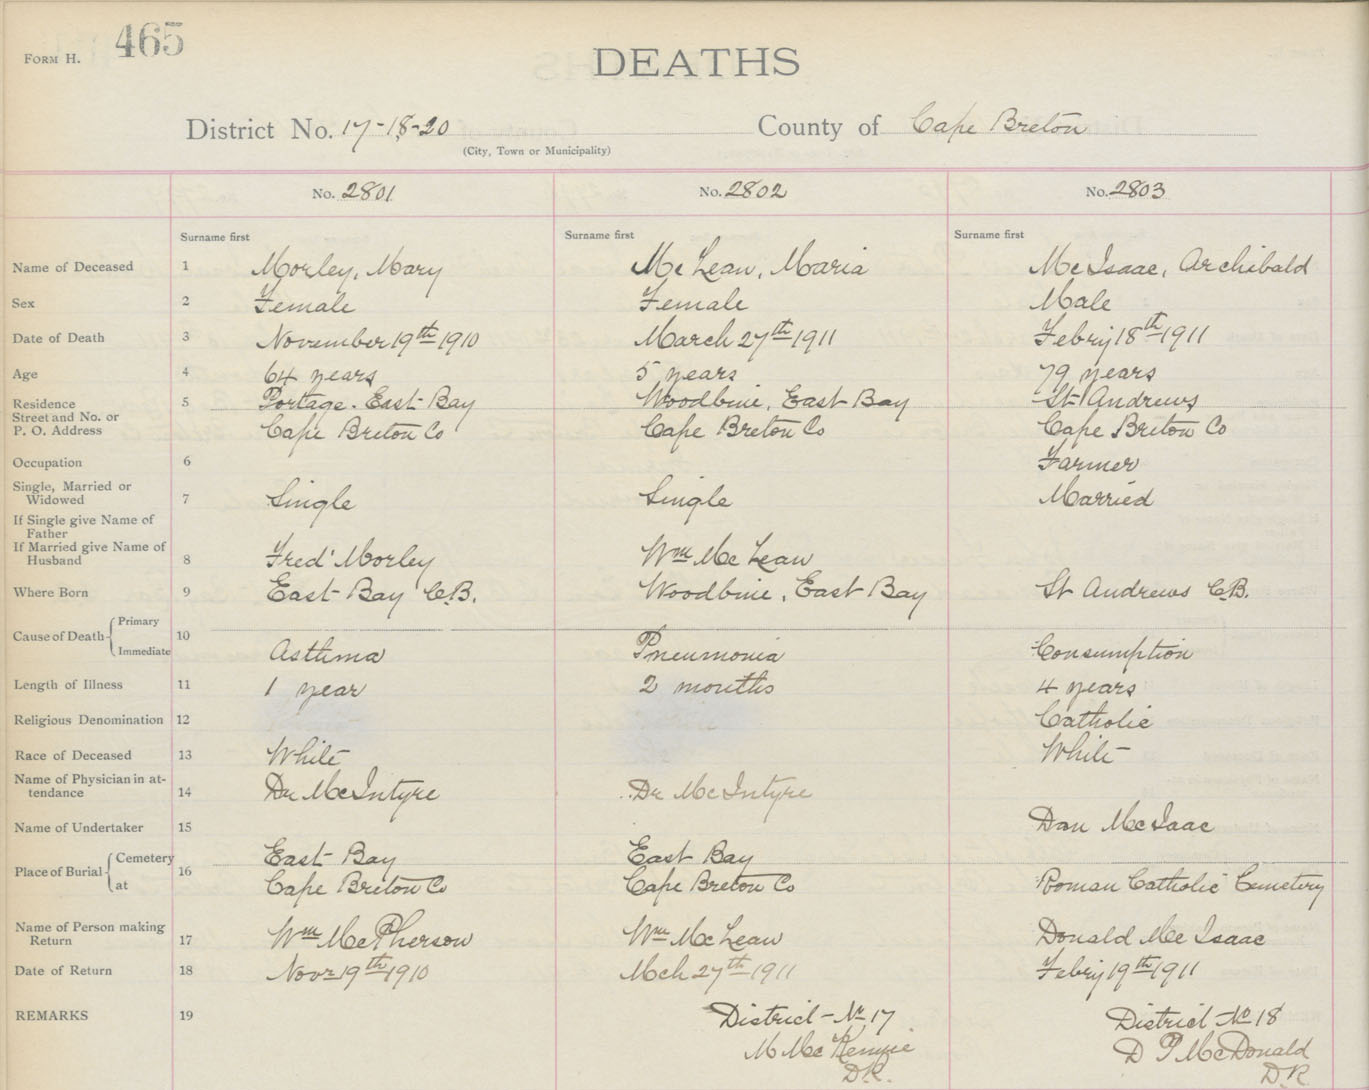 465
FORM H.
DEATHS
District No. 17-18-20
County of Cape Breton
(City, Town or Municipality)
No. 2801 No. 2802 No. 2803
Surname first Surname first Surname first
Name of Deceased 1 Morley, Mary McLean, Maria McIsaac, Archibald
Sex 2 Female Female Male
Date of Death 3 November 19th 1910 March 27th 1911 Febry 18th 1911
Age 4 64 years 5 years 79 years
Residence 5 Portage. East Bay Woodbine, East Bay St Andrews
Street and No. or
P. O. Address Cape Breton Co Cape Breton Co Cape Breton Co
Occupation 6 Farmer
Single, Married or
Widowed 7 Single Single Married
If Single give Name of
Father
If Married give Name of
Husband 8 Fred' Morley Wm McLean
Where Born 9 East Bay C.B. Woodbine, East Bay St Andrews C.B.
Cause of Death { Primary
10
Immediate Asthma Pneumonia Consumption
Length of Illness 11 1 year 2 months 4 years
Religious Denomination 12 Catholic
Race of Deceased 13 White White
Name of Physician in at-
tendance 14 Dr McIntyre Dr McIntyre
Name of Undertaker 15 Dan McIsaac
Place of Burial { Cemetery 16 East Bay East Bay
at Cape Breton Co Cape Breton Co Roman Catholic Cemetery
Name of Person making
Return 17 Wm McPherson Wm McLean Donald McIsaac
Date of Return 18 Novr 19th 1910 Mch 27th 1911 Febry 19th 1911
REMARKS 19 District Nr 17 District No 18
M McKenzie D P McDonald
D.R. D.R.